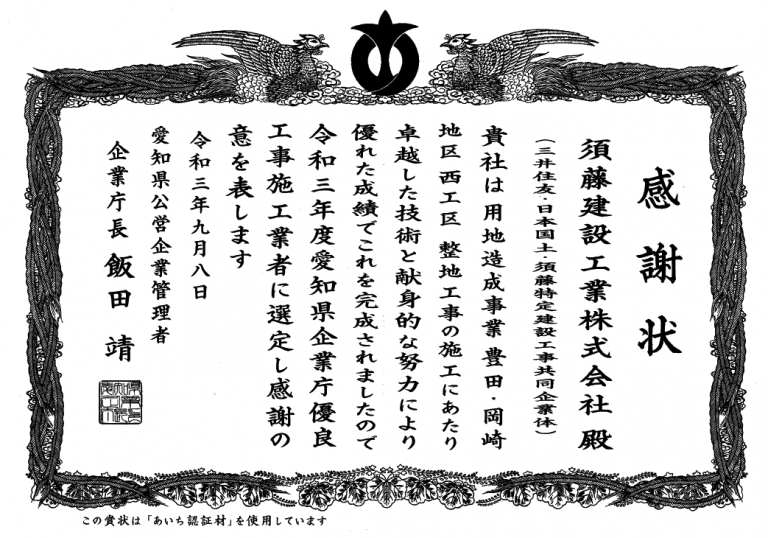 感謝状
須藤建設工業株式会社 殿
(三井住友・日本国土・須藤特定建設工事共同企業体)
貴社は用地造成事業 豊田・岡崎
地区 西工区 整地工事の施工にあたり
卓越した技術と献身的な努力により
優れた成績でこれを完成されましたので
令和三年度愛知県企業庁優良
工事施工業者に選定し感謝の
意を表します
令和三年九月八日
愛知県公営企業管理者
企業庁長 飯田 靖
この賞状は「あいち認証材」を使用しています